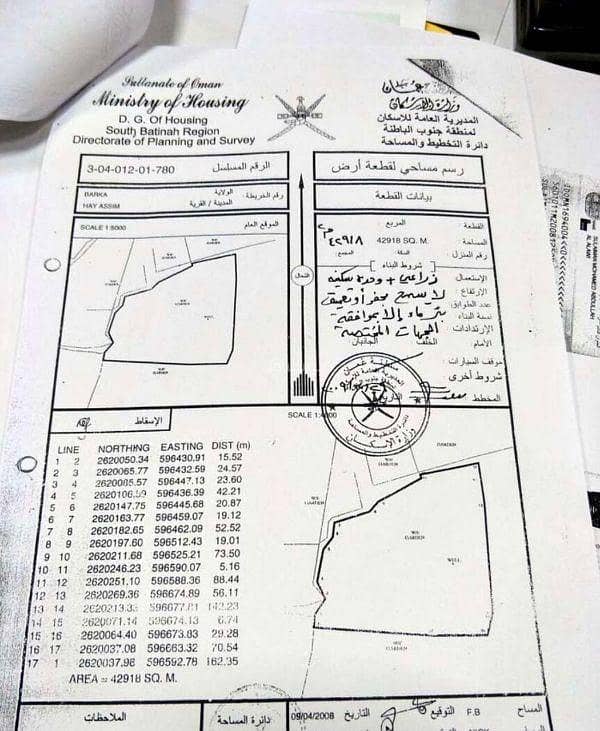 Sultanate of Oman
Ministry of Housing
D. G. Of Housing
South Batinah Region
Directorate of Planning and Survey
عمان
وزارة الإسكان
المديرية العامة للاسكان
لمنطقة جنوب الباطنة
دائرة التخطيط والمساحة
3-04-012-01-780 الرقم المسلسل
رسم مساحي لقطعة أرض
BARKA الولاية
HAY ASSIM المدينة / القرية
رقم الخريطة
بيانات القطعة
SCALE 1:5000 الموقع العام
الشمال
القطعة المربع
المساحة 42918 SQ. M. ٤٢٩١٨ م٢
رقم المنزل السكة المجمع
شروط البناء
الاستعمال زراعي + وحده سكنيه
الارتفاع لا يسمح بحفر أو تعميق
عدد الطوابق
نسبة البناء بئر ماء إلا بموافقة
الإرتدادات الجهات المختصة
الأمام الخلف الجانبان
موقف السيارات
شروط أخرى
المخطط التاريخ
سلطنة عمان
وزارة الإسكان
دائرة التخطيط والمساحة
الإسقاط
SCALE 1:4000
LINE NORTHING EASTING DIST (m)
1 2 2620050.34 596430.91 15.52
2 3 2620065.77 596432.59 24.57
3 4 2620085.57 596447.13 23.60
4 5 2620106.59 596436.39 42.21
5 6 2620147.75 596445.68 20.87
6 7 2620163.77 596459.07 19.12
7 8 2620182.65 596462.09 52.52
8 9 2620197.60 596512.43 19.01
9 10 2620211.68 596525.21 73.50
10 11 2620246.23 596590.07 5.16
11 12 2620251.10 596588.36 88.44
12 13 2620269.36 596674.89 56.11
13 14 2620213.33 596677.81 142.23
14 15 2620071.14 596674.13 6.74
15 16 2620064.40 596673.83 29.28
16 17 2620037.08 596663.32 70.54
17 1 2620037.98 596592.78 162.35
AREA = 42918 SQ. M.
GARDEN
GARDEN
GARDEN
WELL
GARDEN
الملاحظات
دائرة المساحة
09/04/2008 التاريخ
التوقيع
F.B المساح
SULAIMAN MOHAMED ABDULLAH
AL ALAWI